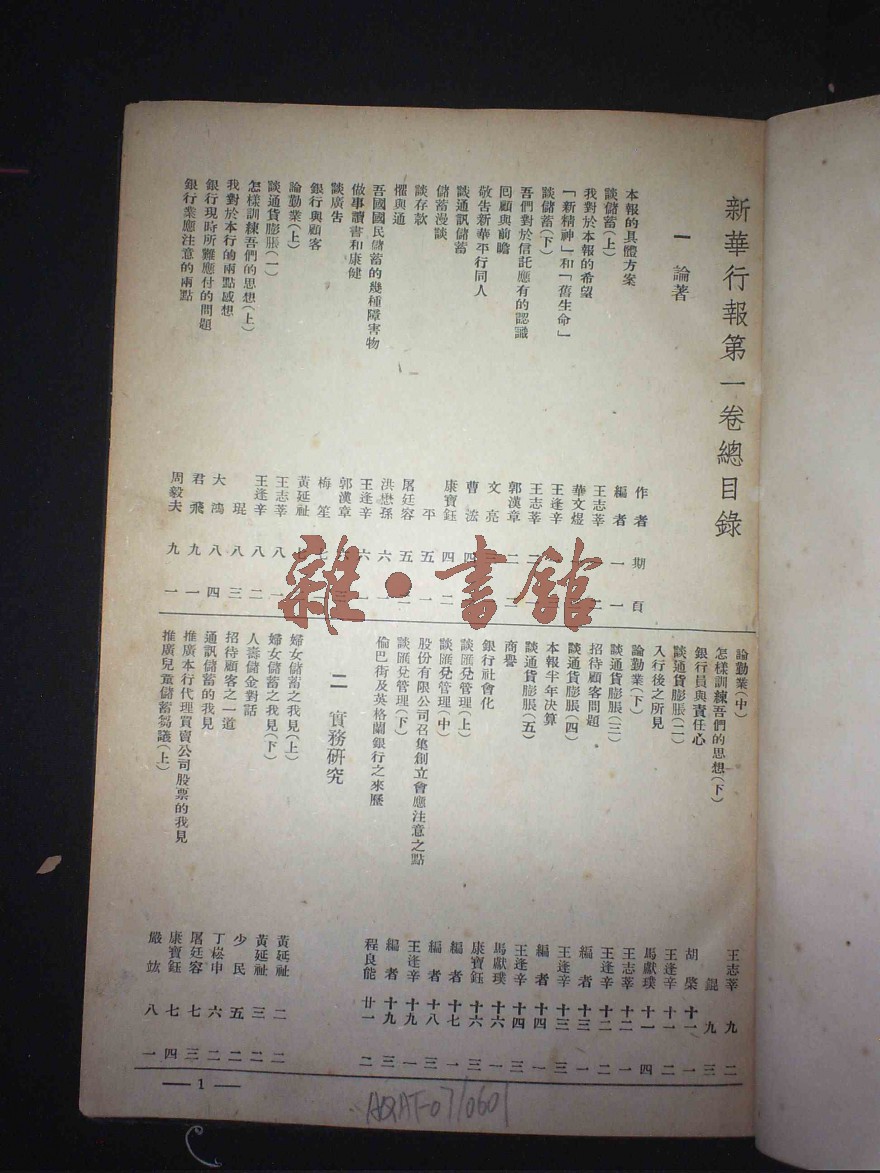 新華行報第一卷總目錄
一 論著
作者 期 頁
本報的具體方案 編者 一 一
談儲蓄(上) 王志莘
我對於本報的希望 華文煜
「新精神」和「舊生命」 王逢辛
談儲蓄(下) 王志莘
吾們對於信託應有的認識 郭漢章
囘顧與前瞻 文亮
敬告新華平行同人 曹浤 四
談通訊儲蓄 康寶鈺 四 二
儲蓄漫談 平 五 一
談存款 屠廷容 五
懼與通 洪懋孫 六
吾國國民儲蓄的幾種障害物 王逢辛 六
做事讀書和康健 郭漢章
談廣告 梅笙 七
銀行與顧客 黃延祉 七
論勤業(上) 王志莘 八
談通貨膨脹(一) 王逢辛 八 二
怎樣訓練吾們的思想(上) 琨 八 三
我對於本行的兩點感想 大鴻 八 四
銀行現時所難應付的問題 君飛 九 一
銀行業應注意的兩點 周毅夫 九 一
論勤業(中) 王志莘 九 二
怎樣訓練吾們的思想(下) 琨 九 三
銀行員與責任心 胡棨 十一 一
談通貨膨脹(二) 王逢辛 十一 二
入行後之所見 馬獻璞 十一 四
論勤業(下) 王志莘 十二 一
談通貨膨脹(三) 王逢辛 十二 二
招待顧客問題 編者 十三 一
談通貨膨脹(四) 王逢辛 十三 三
本報半年决算 編者 十四 一
談通貨膨脹(五) 王逢辛 十四 三
商譽 馬獻璞 十六 一
銀行社會化 康寶鈺 十六 三
談匯兌管理(上) 編者 十七 一
談匯兌管理(中) 編者 十八 三
股份有限公司召集創立會應注意之點 王逢辛 十九 一
談匯兌管理(下) 編者 十九 三
倫巴街及英格蘭銀行之來歷 程良能 廿一 二
二 實務研究
婦女儲蓄之我見(上) 黃延祉 二 二
婦女儲蓄之我見(下) 黃延祉 三 二
人壽儲金對話 少民 五 二
招待顧客之一道 丁崧申 六 二
通訊儲蓄的我見 屠廷容 七 三
推廣本行代理買賣公司股票的我見 康寶鈺 七 四
推廣兒童儲蓄芻議(上) 嚴竑 八 一
— 1 —
雜·書館